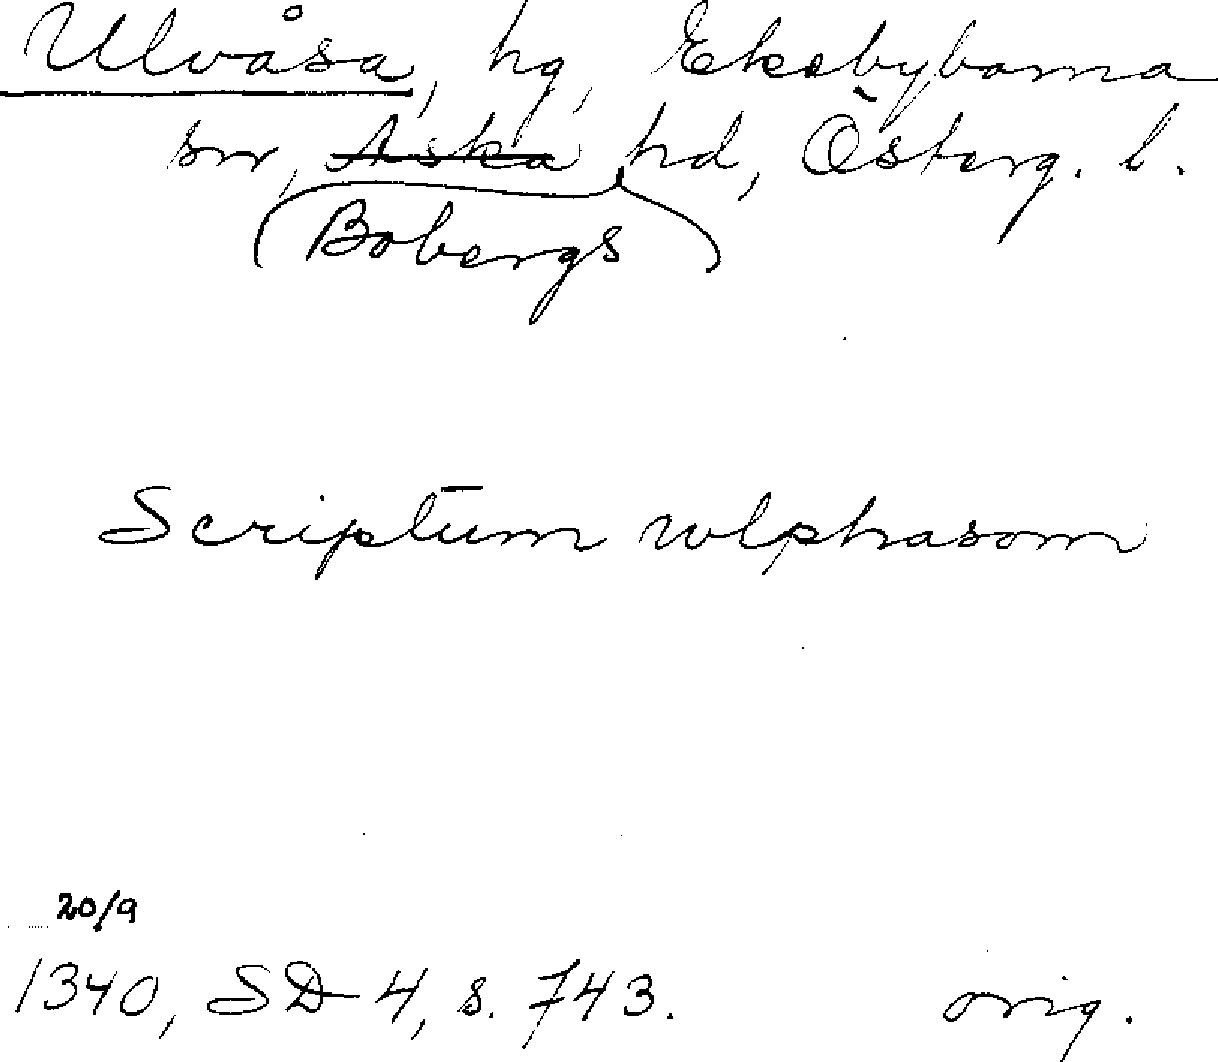 Ulvåsa, hg, Ekebyborna
sn, Aska hd, Österg. l.
Bobergs
Scriptum wlphasom
20/9
1340, SD 4, s. 743. orig.